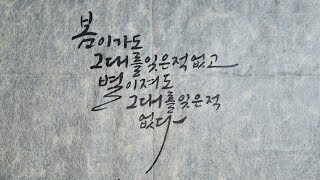 봄이가도
그대를잊은적없고
별이져도
그대를잊은적
없다